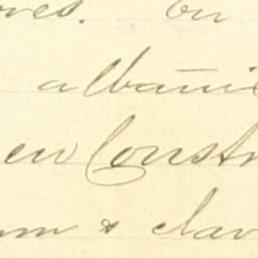 ores. On
albani
ew Constr
um & clav